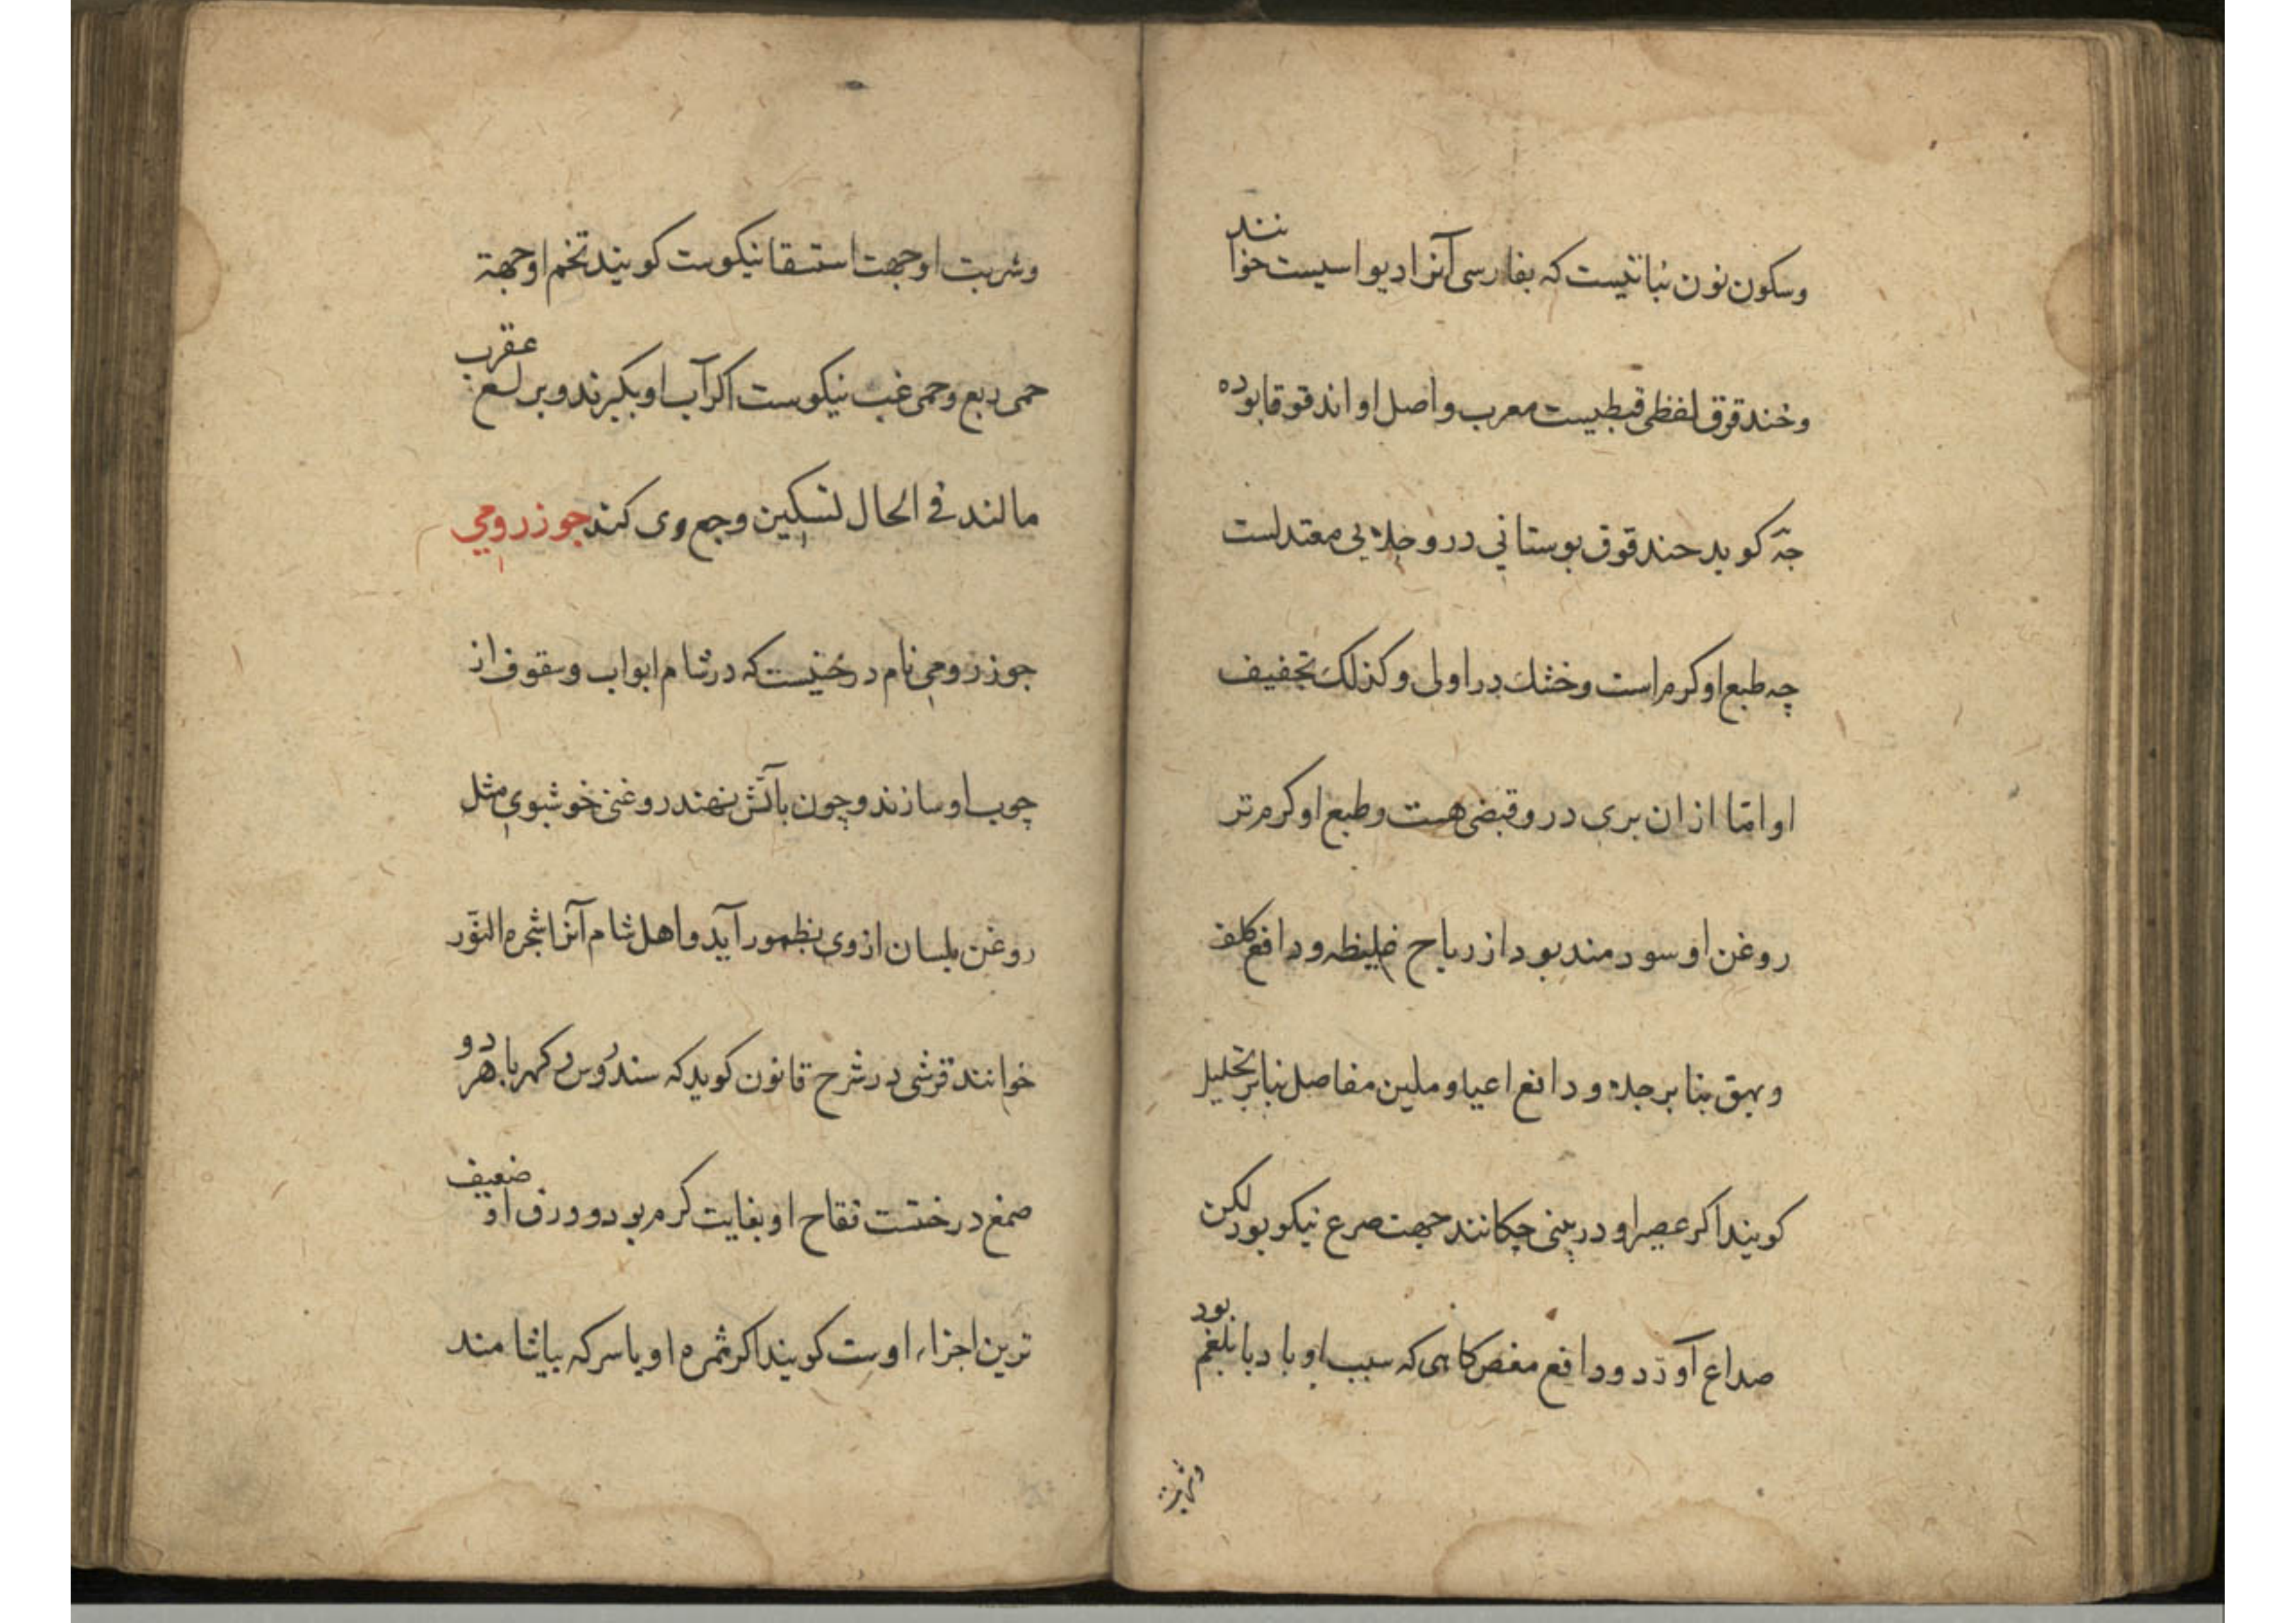 وسکون نون نباتیست که بفارسی آنرا دیو اسیست خوانند
وخندقوق لفظی قبطیست معرب واصل او اندقوقا بوده
جه کوید حندقوق بوستانی درو جلایی معتدلست
چه طبع او کرم است وخشك در اولی وکذلك تجفیف
او امّا ازان بری درو قبضی هست وطبع او کرم تر
روغن او سودمند بود از ریاح غلیظه ودافع کلف
وبهق بنا بر جلا ودافع اعیا وملین مفاصل بنا بر تحلیل
کویند اکر عصیر او در بینی چکانند جهت صرع نیکو بود لکن
صداع آورد ودافع مغص کاهی که سبب او باد یا بلغم بود
وشربت
وشربت او جهت استسقا نیکوست کویند تخم او جهة
حمی ربع وحمی غب نیکوست اکر آب او بکیرند وبر لسع عقرب
مالند فی الحال تسکین وجع وی کند جوز رومی
جوز رومی نام درختیست که در شام ابواب وسقوف از
چوب او سازند وچون بآتش نهند روغنی خوشبوی مثل
روغن بلسان از وی بظهور آید واهل شام آنرا شجره النور
خوانند قرشی در شرح قانون کوید که سندروس و کهربا هر دو
صمغ درختست فقاح او بغایت کرم بود وورق او ضعیف
ترین اجزاء اوست کویند اکر ثمره او با سرکه بیاشامند